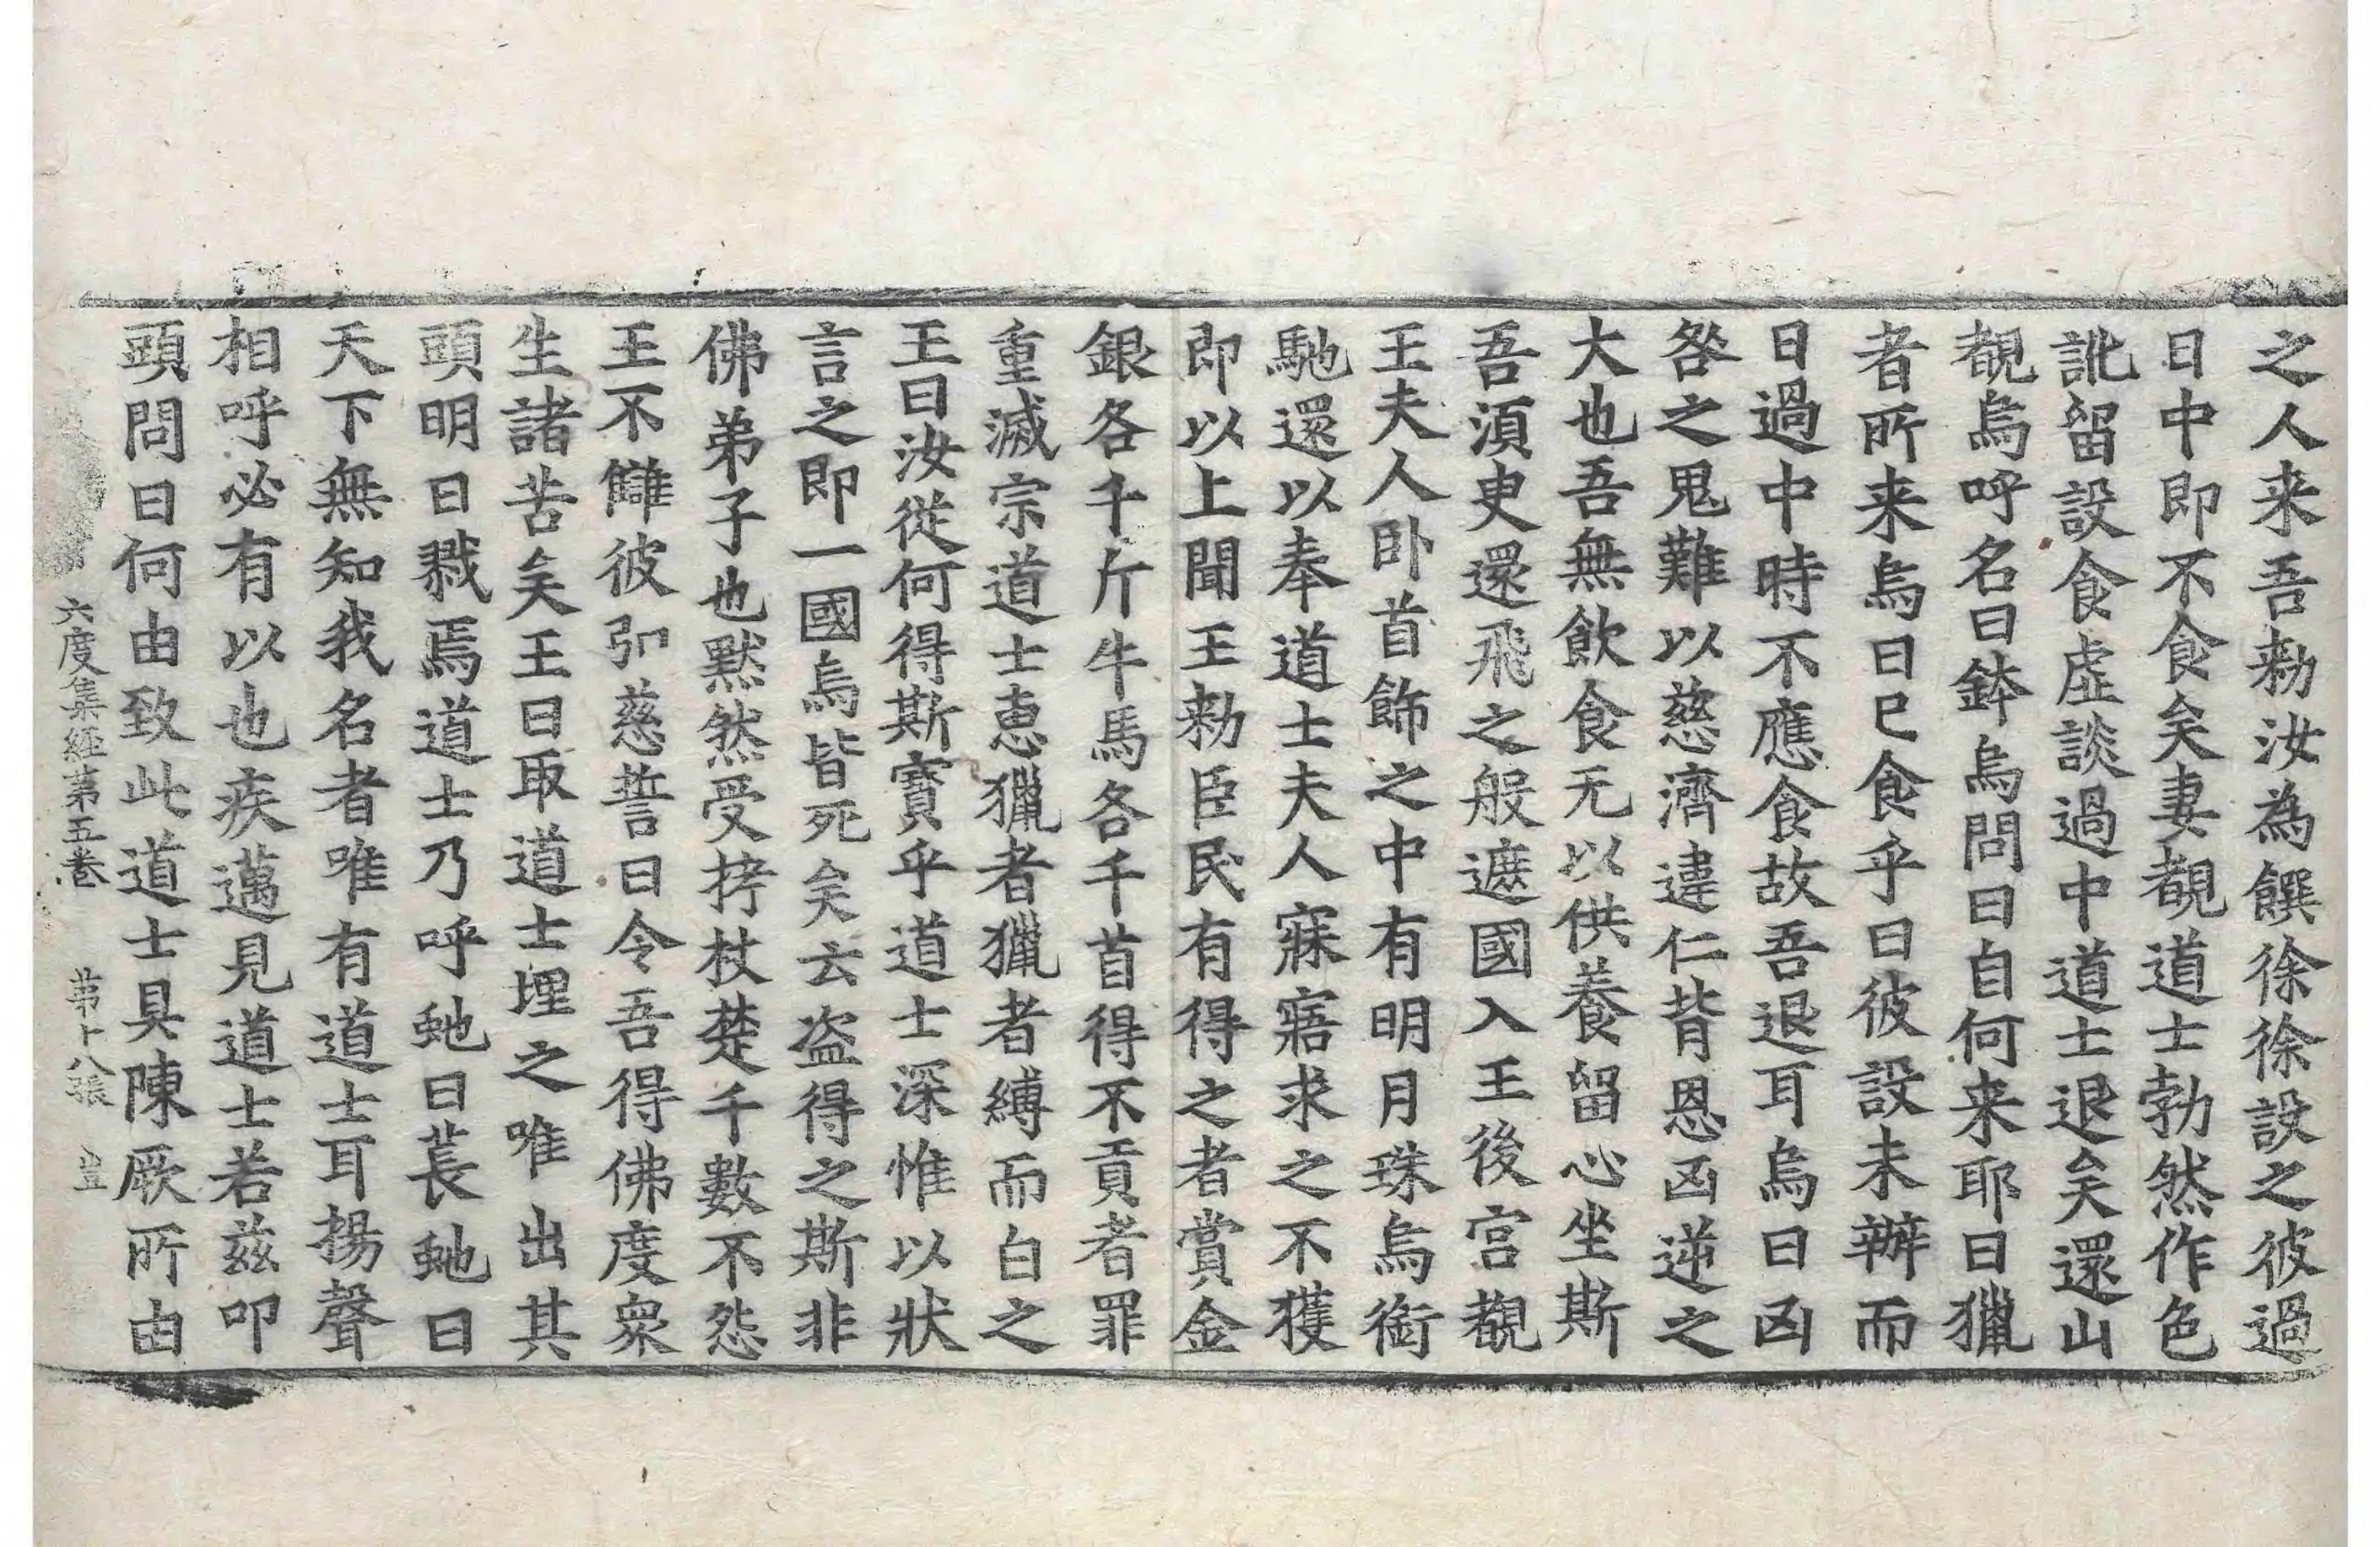 之人来吾勑汝為饌徐徐設之彼過
日中即不食矣妻覩道士勃然作色
訿留設食虛談過中道士退矣還山
覩烏呼名曰鉢烏問曰自何来耶曰獵
者所来烏曰已食乎曰彼設未辦而
日過中時不應食故吾退耳烏曰凶
咎之鬼難以慈濟違仁背恩凶逆之
大也吾無飲食无以供養留心坐斯
吾湏臾還飛之般遮國入王後宮覩
王夫人卧首飾之中有明月珠烏銜
馳還以奉道士夫人寐寤求之不獲
即以上聞王勑臣民有得之者賞金
銀各千斤牛馬各千首得不貢者罪
重滅宗道士惠獵者獵者縛而白之
王曰汝從何得斯寶乎道士深惟以狀
言之即一國烏皆死矣云盗得之斯非
佛弟子也默然受拷杖楚千數不怨
王不讎彼弘慈誓曰令吾得佛度衆
生諸苦矣王曰取道士埋之唯出其
頭明日戮焉道士乃呼虵曰萇虵曰
天下無知我名者唯有道士耳揚聲
相呼必有以也疾邁見道士若茲叩
頭問曰何由致此道士具陳厥所由
六度集經第五卷　第十八張　豈